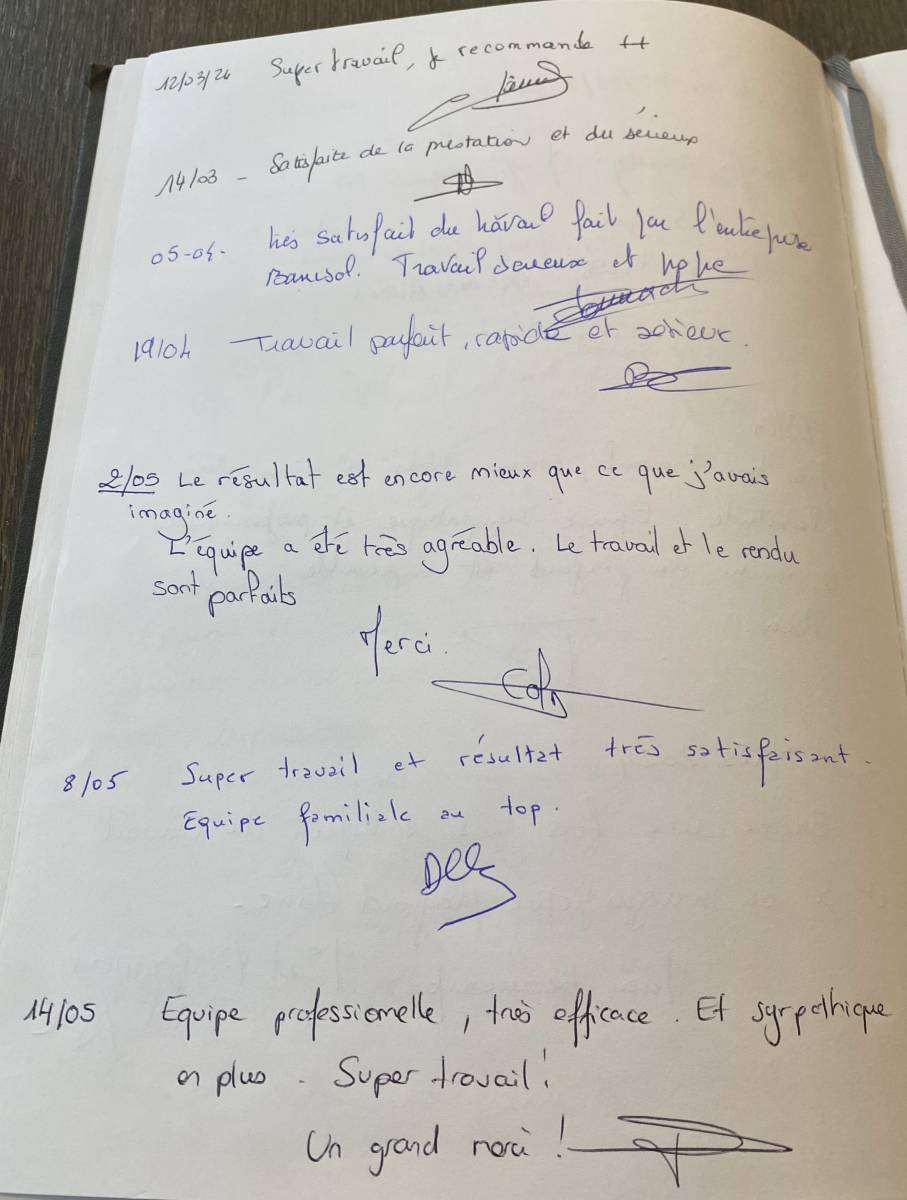 12/03/24 Super travail, je recommande ++
14/03 - Satisfaite de la prestation et du sérieux
05-04. très satisfait du travail fait par l'entreprise
Banisol. Travail sérieux et propre
19/04 Travail parfait, rapide et sérieux.
2/05 Le résultat est encore mieux que ce que j'avais
imaginé.
L'équipe a été très agréable. Le travail et le rendu
sont parfaits
Merci.
8/05 Super travail et résultat très satisfaisant.
Equipe familiale au top.
14/05 Equipe professionelle, très efficace. Et sympathique
en plus. Super travail!
Un grand merci !